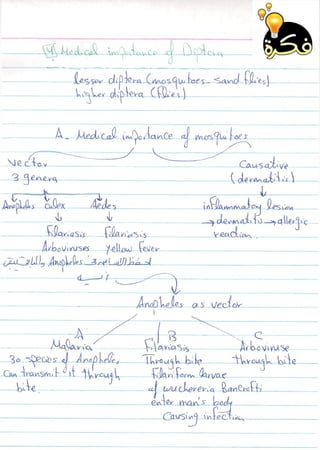 فكرة
(4) Medical importance of Diptera
lesser diptera (mosquitoes - sand flies)
higher diptera (flies)
A- Medical importance of mosquitoes
vector
3 genera
Causative
(dermatitis)
Anopheles Culex Aedes
inflammatory lesion
→ dermatitis → allergic
reaction.
Filariasis Filariasis
Arboviruses Yellow Fever
Anopheles
Anopheles as vector
A B C
Malaria Filariasis Arboviruse
30 species of Anopheles Through bite through bite
Can transmit it through Filariform larvae
bite. of wuchereria Bancrofti
enter man's body
Causing infection